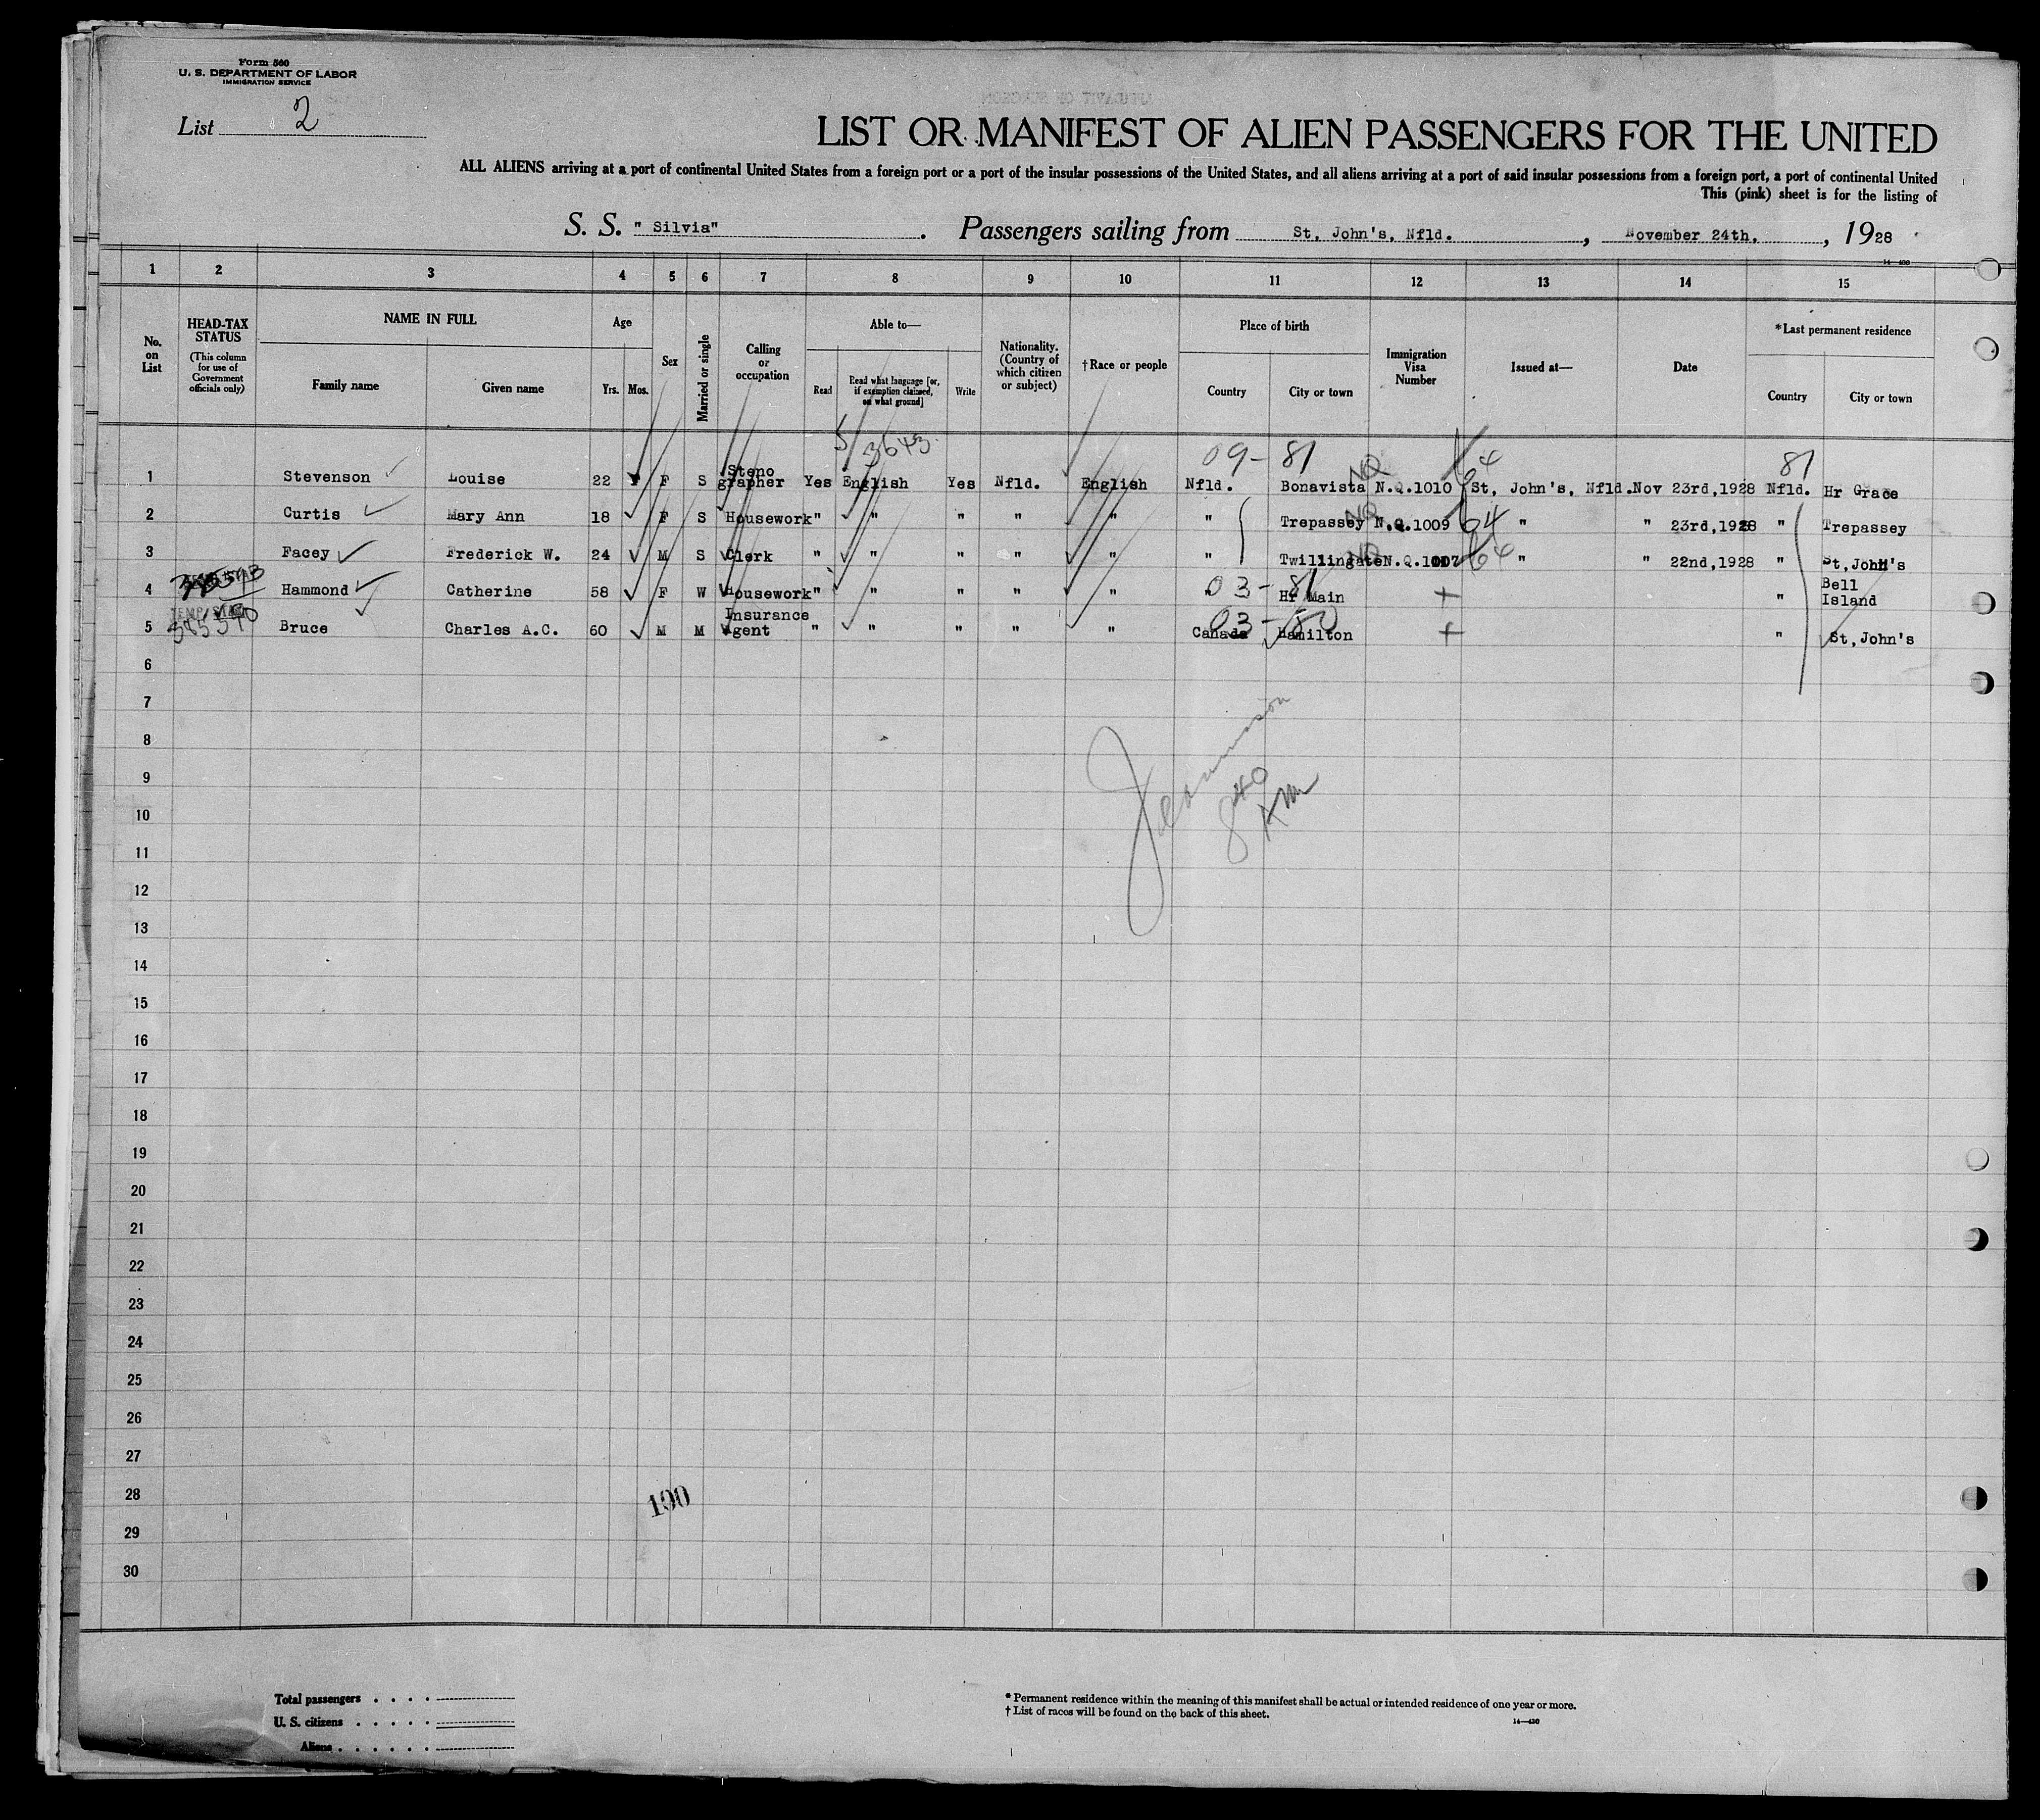 Form 500
U. S. DEPARTMENT OF LABOR
IMMIGRATION SERVICE
List 2
AFFIDAVIT OF SURGEON
LIST OR MANIFEST OF ALIEN PASSENGERS FOR THE UNITED
ALL ALIENS arriving at a port of continental United States from a foreign port or a port of the insular possessions of the United States, and all aliens arriving at a port of said insular possessions from a foreign port, a port of continental United
This (pink) sheet is for the listing of
S. S. " Silvia" . Passengers sailing from St, John's, Nfld. , November 24th, , 1928
1 2 3 4 5 6 7 8 9 10 11 12 13 14 15
No. on List
HEAD-TAX STATUS (This column for use of Government officials only)
NAME IN FULL
Family name Given name
Age
Yrs. Mos.
Sex
Married or single
Calling or occupation
Able to—
Read Read what language [or, if exemption claimed, on what ground] Write
Nationality. (Country of which citizen or subject)
†Race or people
Place of birth
Country City or town
Immigration Visa Number
Issued at—
Date
*Last permanent residence
Country City or town
5 3643 09- 81 NQ 64 81
1 Stevenson Louise 22 F S Steno grapher Yes English Yes Nfld. English Nfld. Bonavista N.Q.1010 St, John's, Nfld. Nov 23rd,1928 Nfld. Hr Grace
2 Curtis Mary Ann 18 F S Housework " " " " " " Trepassey NQ N.Q.1009 64 " " 23rd,1928 " Trepassey
3 Facey Frederick W. 24 M S Clerk " " " " " " Twillingate NQ N.Q.1007 64 " " 22nd,1928 " St,John's
4 Hammond Catherine 58 F W Housework " " " " " " 03-81 Hr Main + " Bell Island
TEMP. STAY
5 Bruce Charles A.C. 60 M M Insurance Agent " " " " " Canada 03-80 Hamilton + " St,John's
6
7
8
9
10
11
12
13
14
15
16
17
18
19
20
21
22
23
24
25
26
27
28
29
30
8 40 AM
190
Total passengers . . . .
U. S. citizens . . . . .
Aliens . . . . . .
* Permanent residence within the meaning of this manifest shall be actual or intended residence of one year or more.
† List of races will be found on the back of this sheet.
14—430